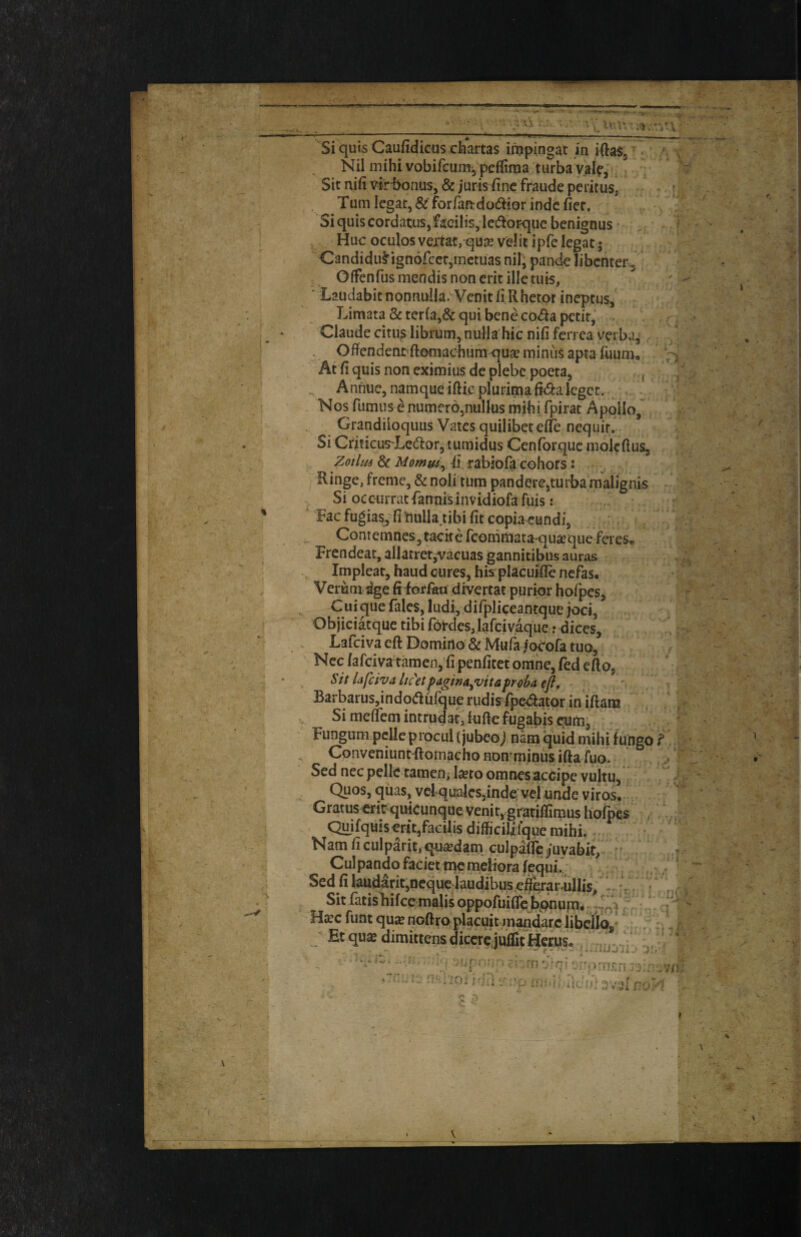 Si quis Caufidicus chartas impingat in iſtas,
Nil mihi vobiſcum, peſſima turba vale,
Sit niſi vir bonus, & juris ſine fraude peritus,
Tum legat, & forſan doctior inde fiet.
Si quis cordatus, facilis, lectorque benignus
Huc oculos vertat, quæ velit ipſe legat;
Candidus ignoſcet, metuas nil, pande libenter,
Offenſus mendis non erit ille tuis,
Laudabit nonnulla. Venit ſi Rhetor ineptus,
Limata & terſa, & qui bene cocta petit,
Claude citus librum, nulla hic niſi ferrea verba,
Offendent ſtomachum quæ minùs apta ſuum.
At ſi quis non eximius de plebe poeta,
Annue, namque iſtic plurima ficta leget.
Nos ſumus è numero, nullus mihi ſpirat Apollo,
Grandiloquus Vates quilibet eſſe nequit.
Si Criticus Lector, tumidus Cenſorque moleſtus,
Zoilus & Momus, ſi rabioſa cohors:
Ringe, freme, & noli tum pandere, turba malignis
Si occurrat ſannis invidioſa ſuis:
Fac fugias, ſi nulla tibi ſit copia eundi,
Contemnes, tacitè ſcommata quæque feres.
Frendeat, allatret, vacuas gannitibus auras
Impleat, haud cures, his placuiſſe nefas.
Verùm age ſi forſan divertat purior hoſpes,
Cuique ſales, ludi, diſpliceantque joci,
Objiciatque tibi ſordes, laſcivaque: dices,
Laſciva eſt Domino & Muſa jocoſa tuo,
Nec laſciva tamen, ſi penſitet omne, ſed eſto,
Sit laſciva licet pagina, vita proba eſt.
Barbarus, indoctuſque rudis ſpectator in iſtam
Si meſſem intrudat, fuſte fugabis eum,
Fungum pelle procul (jubeo) nam quid mihi fungo?
Conveniunt ſtomacho non minus iſta ſuo.
Sed nec pelle tamen, læto omnes accipe vultu,
Quos, quas, vel quales, inde vel unde viros.
Gratus erit quicunque venit, gratiſſimus hoſpes
Quiſquis erit, facilis difficiliſque mihi.
Nam ſi culpârit, quædam culpaſſe juvabit,
Culpando faciet me meliora ſequi.
Sed ſi laudârit, neque laudibus efferar ullis,
Sit ſatis hiſce malis oppoſuiſſe bonum.
Hæc ſunt quæ noſtro placuit mandare libello,
Et quæ dimittens dicere juſſit Herus.